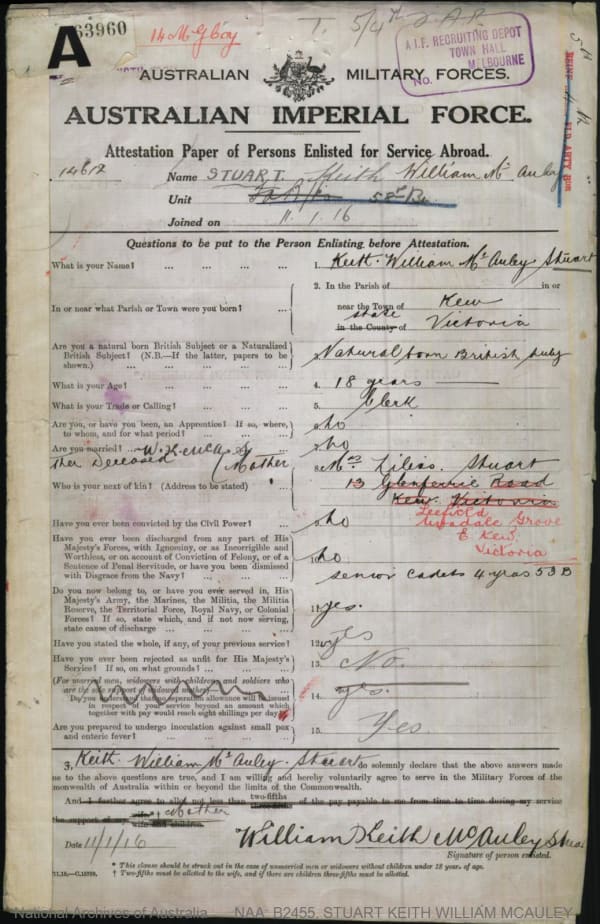 A
63960
A.I.F. RECRUITING DEPOT
TOWN HALL
MELBOURNE
No.
AUSTRALIAN MILITARY FORCES.
AUSTRALIAN IMPERIAL FORCE.
Attestation Paper of Persons Enlisted for Service Abroad.
Name STUART Keith William Mc Auley
Unit
Joined on 11.1.16
Questions to be put to the Person Enlisting before Attestation.
What is your Name? ... ... ... ... 1. Keith William Mc Auley Stuart
In or near what Parish or Town were you born? ... 2. In the Parish of in or
near the Town of Kew
state
in the County of Victoria
Are you a natural born British Subject or a Naturalized
British Subject? (N.B.—If the latter, papers to be
shown.) ... ... ... ... 3. Natural born British
What is your Age? ... ... ... ... 4. 18 years
What is your Trade or Calling? ... ... ... 5. Clerk
Are you, or have you been, an Apprentice? If so, where,
to whom, and for what period? ... ... ... 6. No
Are you married? ... 7. No
ther Deceased (Mother
Who is your next of kin? (Address to be stated) ... 8. Mrs Lilias. Stuart
13 Glenferrie Road
Kew. Victoria
Grove
E Kew.
Victoria
Have you ever been convicted by the Civil Power? ... 9. No
Have you ever been discharged from any part of His
Majesty's Forces, with Ignominy, or as Incorrigible and
Worthless, or on account of Conviction of Felony, or of a
Sentence of Penal Servitude, or have you been dismissed
with Disgrace from the Navy? ... ... ... 10. No
senior cadets 4 yras 53 B
Do you now belong to, or have you ever served in, His
Majesty's Army, the Marines, the Militia, the Militia
Reserve, the Territorial Force, Royal Navy, or Colonial
Forces? If so, state which, and if not now serving,
state cause of discharge ... ... ... 11. yes.
Have you stated the whole, if any, of your previous service? 12. yes
Have you ever been rejected as unfit for His Majesty's
Service? If so, on what grounds? ... ... 13. No.
(For married men, widowers with children, and soldiers who
are the sole support of widowed mother—
Do you understand that no separation allowance will be issued
in respect of your service beyond an amount which
together with pay would reach eight shillings per day? 14. yes.
Are you prepared to undergo inoculation against small pox
and enteric fever? ... ... ... ... 15. Yes.
3, Keith William Mc Auley Stuart do solemnly declare that the above answers made
me to the above questions are true, and I am willing and hereby voluntarily agree to serve in the Military Forces of the
monwealth of Australia within or beyond the limits of the Commonwealth.
And I further agree to allot not less than two-fifths of the pay payable to me from time to time during my service
the support of my wife Mother
wife and children
Date 11/1/16 William Keith McAuley Stuar
Signature of person enlisted.
* This clause should be struck out in the case of unmarried men or widowers without children under 18 years of age.
† Two-fifths must be allotted to the wife, and if there are children three-fifths must be allotted.
National Archives of Australia NAA: B2455, STUART KEITH WILLIAM MCAULEY